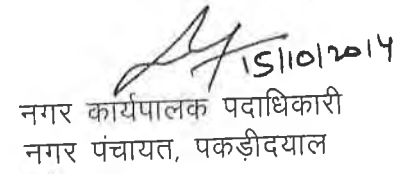 15/10/2014
नगर कार्यपालक पदाधिकारी
नगर पंचायत, पकड़ीदयाल